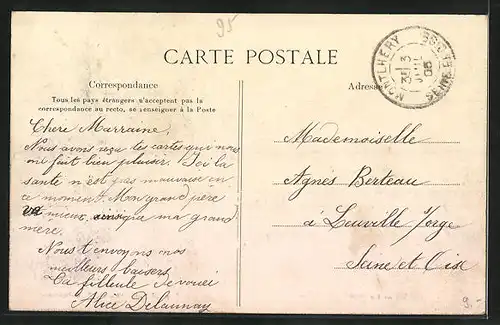 95
CARTE POSTALE
MONTLHERY
3
JUIL
05
SEINE ET
Correspondance
Adresse
Tous les pays étrangers n'acceptent pas la
correspondance au recto, se renseigner à la Poste
Chere Marraine,
Nous avons reçu tes cartes qui nous
ont fait bien plaisir. Ici la
santé n'est pas mauvaise en
ce moment. Mon grand père
va mieux ainsi que ma grand
mère.
Nous t'envoyons nos
meilleurs baisers
Ta filleule
Alice Delaunay
Mademoiselle
Agnès Berteau
à Leuville s/orge
Seine et Oise
9.-